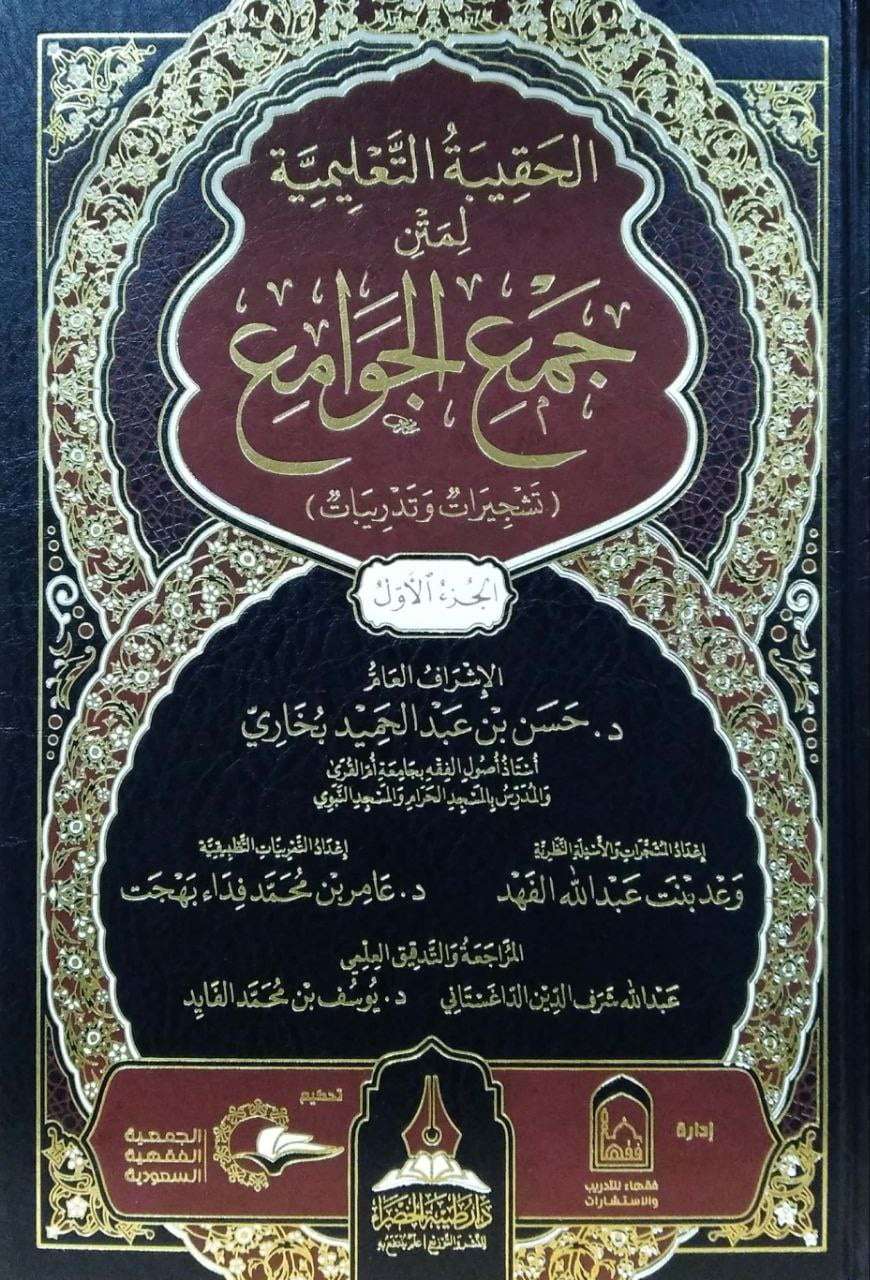 الحَقِيبَةُ التَّعْلِيمِيَّة
لِمَتْنِ
جَمْعِ الجَوَامِعِ
(تَشْجِيرَاتٌ وَتَدْرِيبَاتٌ)
الجُزْءُ الأَوَّلُ
الإِشْرَافُ العَامُّ
د. حَسَن بْن عَبْد الحَمِيد بُخَارِيّ
أُسْتَاذُ أُصُولِ الفِقْهِ بِجَامِعَةِ أُمِّ القُرَى
وَالمُدَرِّسُ بِالمَسْجِدِ الحَرَامِ وَالمَسْجِدِ النَّبَوِي
إعْدَادُ المُشَجَّرَاتِ وَالأَسْئِلَةِ النَّظَرِيَّةِ
وَعْد بِنْت عَبْد الله الفَهْد
إعْدَادُ التَّدْرِيبَاتِ التَّطْبِيقِيَّةِ
د. عَامِر بْن مُحَمَّد فِدَاء بَهْجَت
المُرَاجَعَةُ وَالتَّدْقِيقُ العِلْمِي
عَبْد الله شَرَف الدِّيْن الدَّاغِسْتَانِي
د. يُوسُف بْن مُحَمَّد الفَايِد
إدارة
فقهاء
فقهاء للتدريب
والاستشارات
دار طيبة الخضراء
للنشر والتوزيع | علم ينتفع به
تحكيم
الجمعية
الفقهية
السعودية